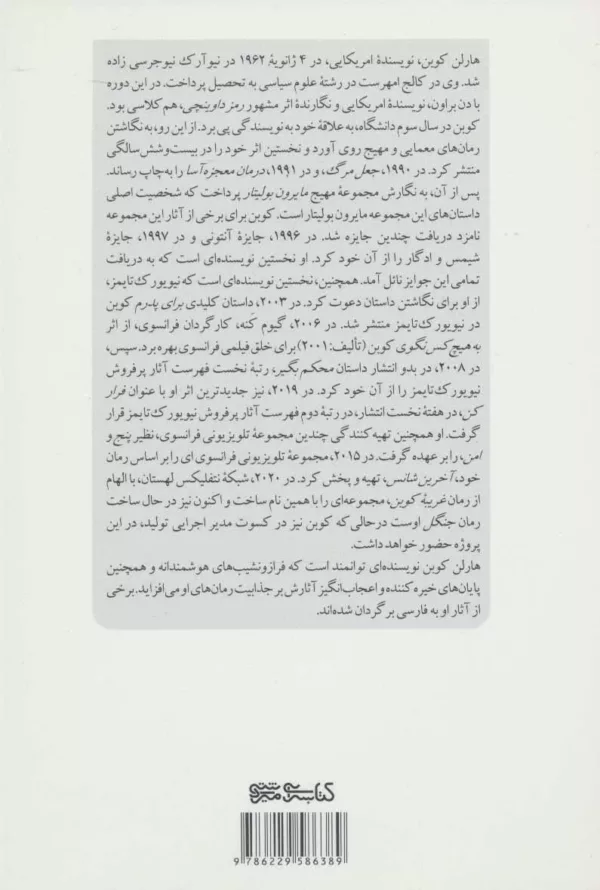 هارلن کوبن، نویسندهٔ امریکایی، در ۴ ژانویهٔ ۱۹۶۲ در نیوآرک نیوجرسی زاده
شد. وی در کالج امهرست در رشتهٔ علوم سیاسی به تحصیل پرداخت. در این دوره
با دن براون، نویسندهٔ امریکایی و نگارندهٔ اثر مشهور رمز داوینچی، هم‌کلاسی بود.
کوبن در سال سوم دانشگاه، به علاقهٔ خود به نویسندگی پی برد. از این رو، به نگاشتن
رمان‌های معمایی و مهیج روی آورد و نخستین اثر خود را در بیست‌وشش‌سالگی
منتشر کرد. در ۱۹۹۰، جعل مرگ، و در ۱۹۹۱، درمان معجزه‌آسا را به‌چاپ رساند.
پس از آن، به نگارش مجموعهٔ مهیج مایرون بولیتار پرداخت که شخصیت اصلی
داستان‌های این مجموعه مایرون بولیتار است. کوبن برای برخی از آثار این مجموعه
نامزد دریافت چندین جایزه شد. در ۱۹۹۶، جایزهٔ آنتونی و در ۱۹۹۷، جایزهٔ
شیمس و ادگار را از آن خود کرد. او نخستین نویسنده‌ای است که به دریافت
تمامی این جوایز نائل آمد. همچنین، نخستین نویسنده‌ای است که نیویورک‌تایمز،
از او برای نگاشتن داستان دعوت کرد. در ۲۰۰۳، داستان کلیدی برای پدرم کوبن
در نیویورک‌تایمز منتشر شد. در ۲۰۰۶، گیوم کَنه، کارگردان فرانسوی، از اثر
به هیچ‌کس نگوی کوبن (تألیف: ۲۰۰۱) برای خلق فیلمی فرانسوی بهره برد. سپس،
در ۲۰۰۸، در بدو انتشار داستان محکم بگیر، رتبهٔ نخست فهرست آثار پرفروش
نیویورک‌تایمز را از آن خود کرد. در ۲۰۱۹، نیز جدیدترین اثر او با عنوان فرار
کن، در هفتهٔ نخست انتشار، در رتبهٔ دوم فهرست آثار پرفروش نیویورک‌تایمز قرار
گرفت. او همچنین تهیه‌کنندگی چندین مجموعهٔ تلویزیونی فرانسوی، نظیر پنج و
امن، را بر عهده گرفت. در ۲۰۱۵، مجموعهٔ تلویزیونی فرانسوی‌ای را بر اساس رمان
خود، آخرین شانس، تهیه و پخش کرد. در ۲۰۲۰، شبکهٔ نتفلیکس لهستان، با الهام
از رمان غریبهٔ کوبن، مجموعه‌ای را با همین نام ساخت و اکنون نیز در حال ساخت
رمان جنگل اوست درحالی‌که کوبن نیز در کسوت مدیر اجرایی تولید، در این
پروژه حضور خواهد داشت.
هارلن کوبن نویسنده‌ای توانمند است که فرازونشیب‌های هوشمندانه و همچنین
پایان‌های خیره‌کننده و اعجاب‌انگیز آثارش بر جذابیت رمان‌های او می‌افزاید. برخی
از آثار او به فارسی برگردان شده‌اند.
کتابسرای میردشتی
9 786229 586389